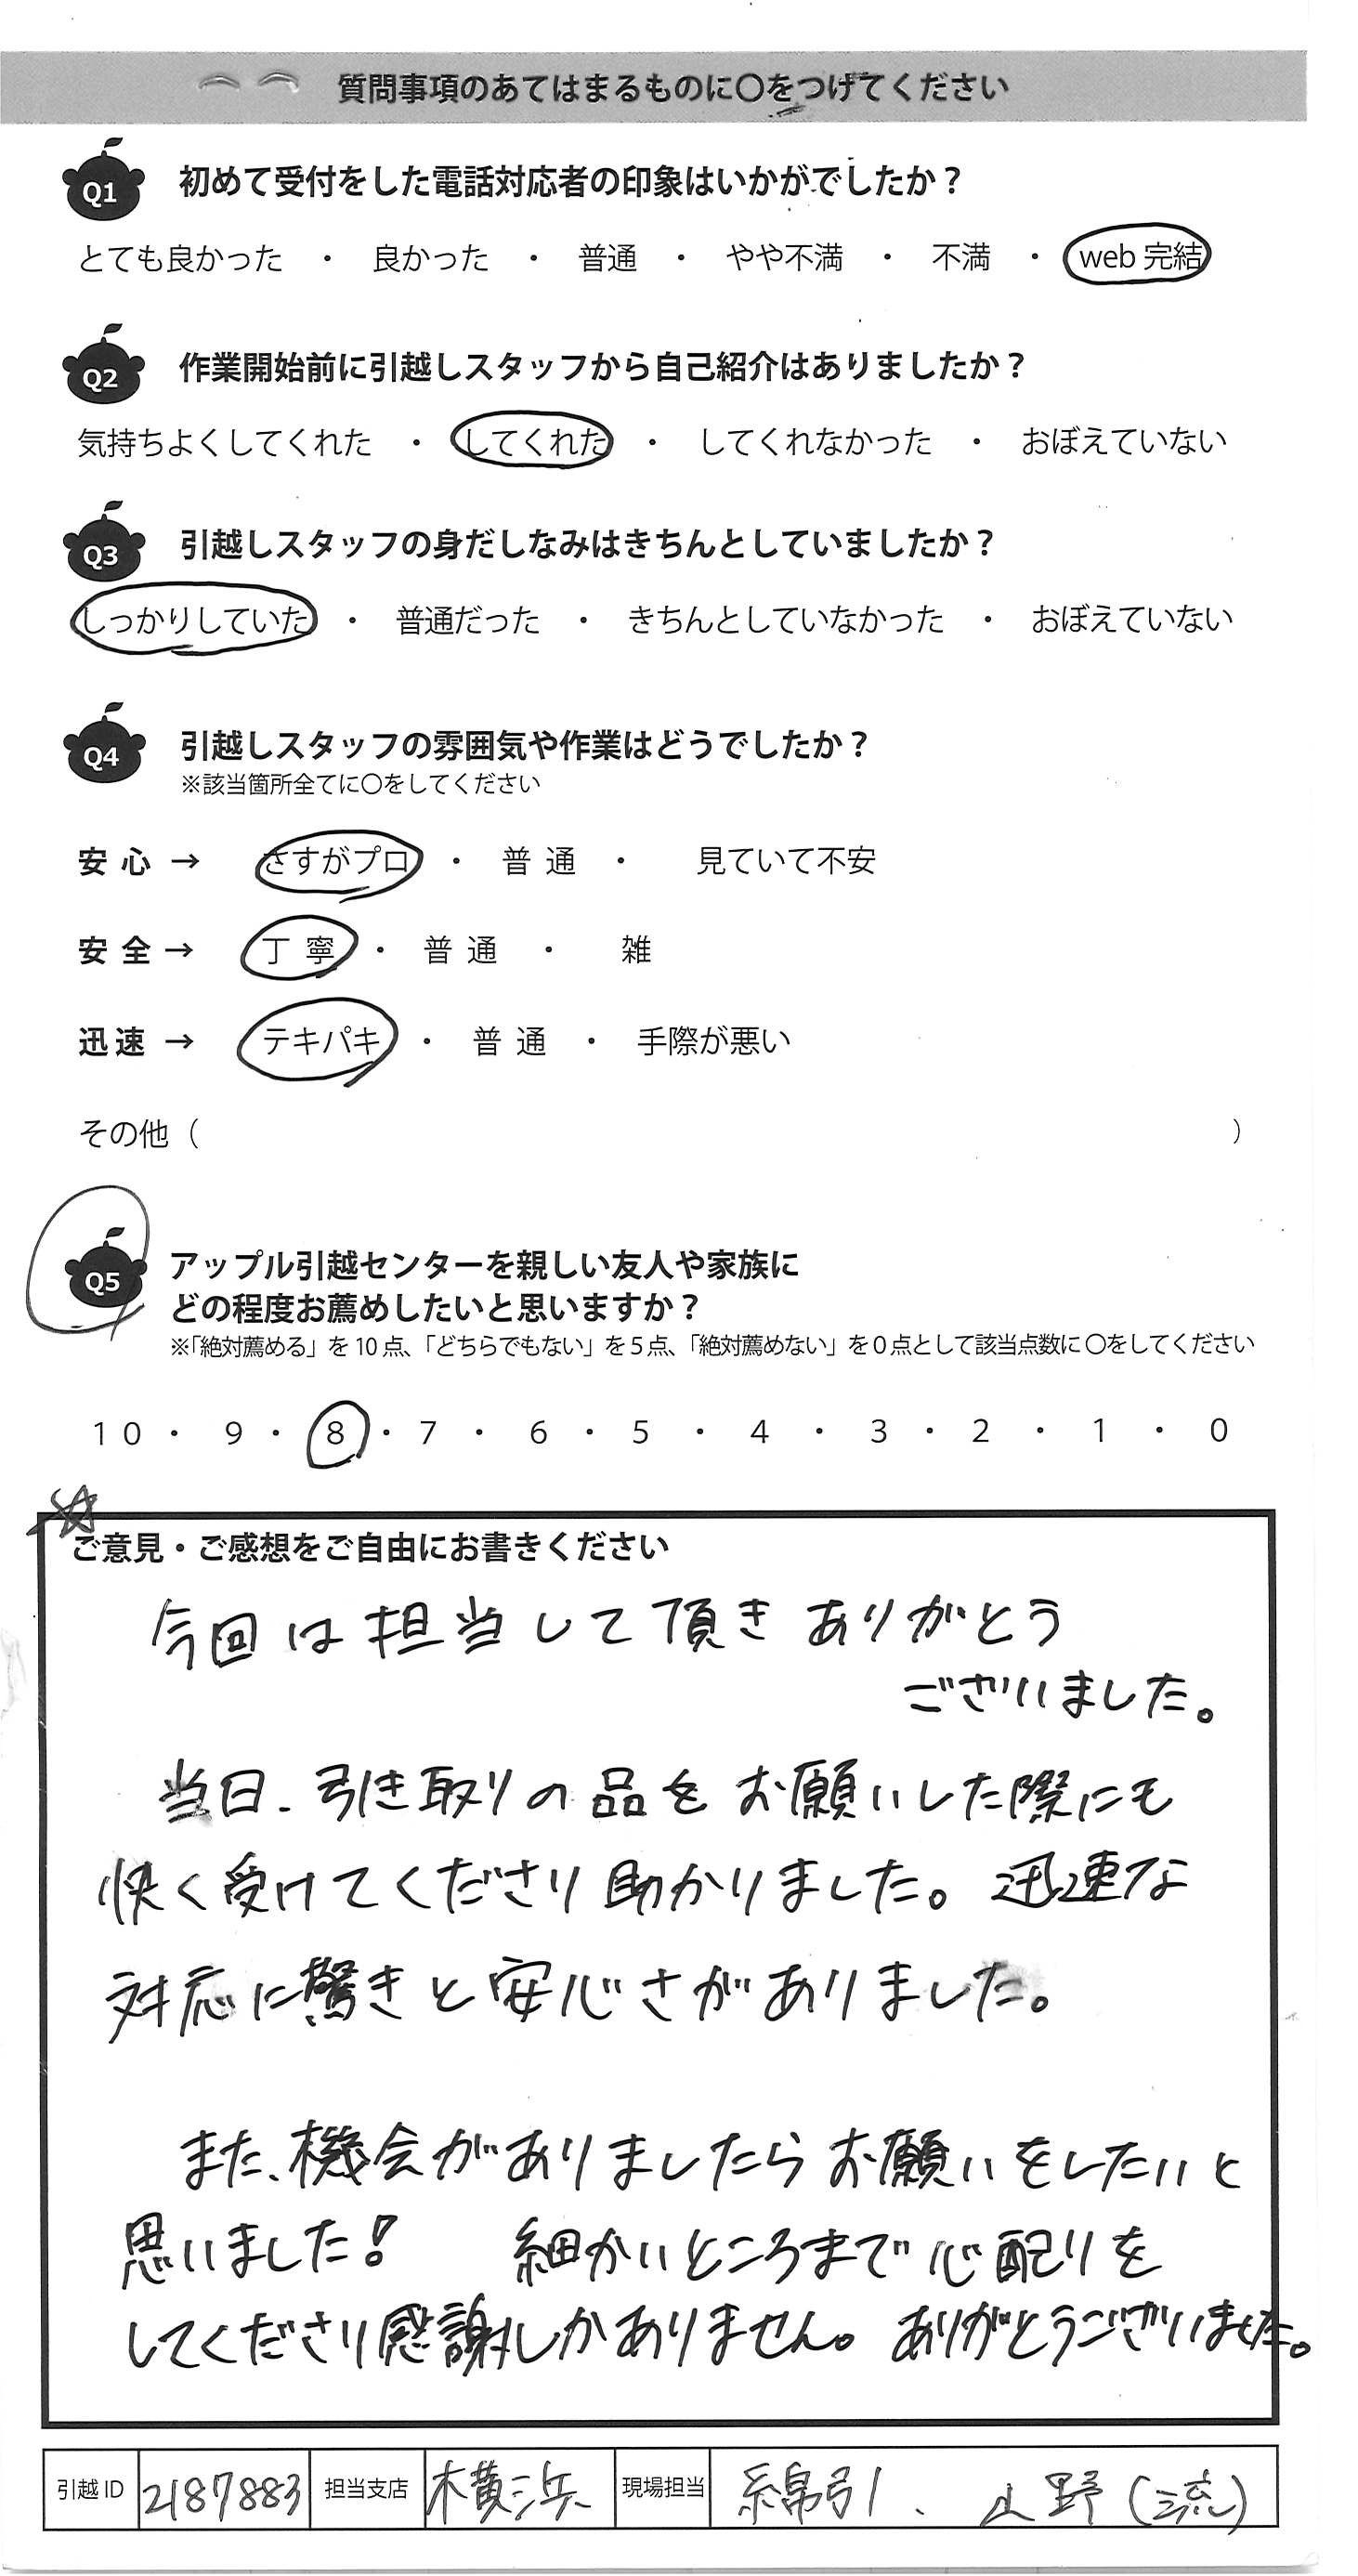 質問事項のあてはまるものに〇をつけてください
Q1 初めて受付をした電話対応者の印象はいかがでしたか？
とても良かった ・ 良かった ・ 普通 ・ やや不満 ・ 不満 ・ web 完結
Q2 作業開始前に引越しスタッフから自己紹介はありましたか？
気持ちよくしてくれた ・ してくれた ・ してくれなかった ・ おぼえていない
Q3 引越しスタッフの身だしなみはきちんとしていましたか？
しっかりしていた ・ 普通だった ・ きちんとしていなかった ・ おぼえていない
Q4 引越しスタッフの雰囲気や作業はどうでしたか？
※該当箇所全てに〇をしてください
安心 → さすがプロ ・ 普通 ・ 見ていて不安
安全 → 丁寧 ・ 普通 ・ 雑
迅速 → テキパキ ・ 普通 ・ 手際が悪い
その他（ ）
Q5 アップル引越センターを親しい友人や家族に
どの程度お薦めしたいと思いますか？
※「絶対薦める」を10点、「どちらでもない」を5点、「絶対薦めない」を0点として該当点数に〇をしてください
10 ・ 9 ・ 8 ・ 7 ・ 6 ・ 5 ・ 4 ・ 3 ・ 2 ・ 1 ・ 0
ご意見・ご感想をご自由にお書きください
今回は担当して頂きありがとう
ございました。
当日、引き取りの品をお願いした際にも
快く受けてくださり助かりました。迅速な
対応に驚きと安心さがありました。
また、機会がありましたらお願いをしたいと
思いました！ 細かいところまで心配りを
してくださり感謝しかありません。ありがとうございました。
引越ID 2187883 担当支店 横浜 現場担当 綿引、山野（流）